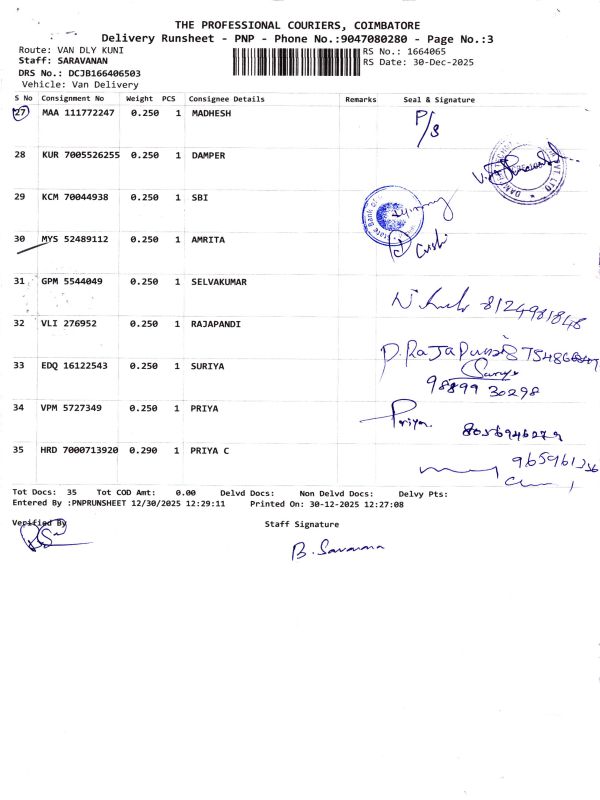 THE PROFESSIONAL COURIERS, COIMBATORE
Delivery Runsheet - PNP - Phone No.:9047080280 - Page No.:3
Route: VAN DLY KUNI RS No.: 1664065
Staff: SARAVANAN RS Date: 30-Dec-2025
DRS No.: DCJB166406503
Vehicle: Van Delivery
S No Consignment No Weight PCS Consignee Details Remarks Seal & Signature
27 MAA 111772247 0.250 1 MADHESH P/S
28 KUR 7005526255 0.250 1 DAMPER
29 KCM 70044938 0.250 1 SBI State Bank of
30 MYS 52489112 0.250 1 AMRITA
31 GPM 5544049 0.250 1 SELVAKUMAR 8124981848
32 VLI 276952 0.250 1 RAJAPANDI P. RaJa
33 EDQ 16122543 0.250 1 SURIYA 98899 30298
34 VPM 5727349 0.250 1 PRIYA Priya 8056946279
35 HRD 7000713920 0.290 1 PRIYA C
Tot Docs: 35 Tot COD Amt: 0.00 Delvd Docs: Non Delvd Docs: Delvy Pts:
Entered By :PNPRUNSHEET 12/30/2025 12:29:11 Printed On: 30-12-2025 12:27:08
Verified By Staff Signature
B. Savarana